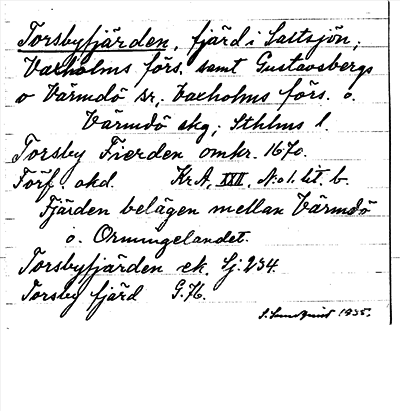 Torsbyfjärden, fjärd i Saltsjön,
Vaxholms förs. samt Gustavsbergs
o Värmdö sr, Vaxholms förs. o.
Värmdö skg, Sthlms l.
Torsby Fierden omkr. 1670.
Förf. okd. Kr.A, XXII, No 1. lit. b.
Fjärden belägen mellan Värmdö
o. Ormingelandet.
Torsbyfjärden ek. Sj. 234.
Torsby fjärd G.76.
S. Sundquist 1935.